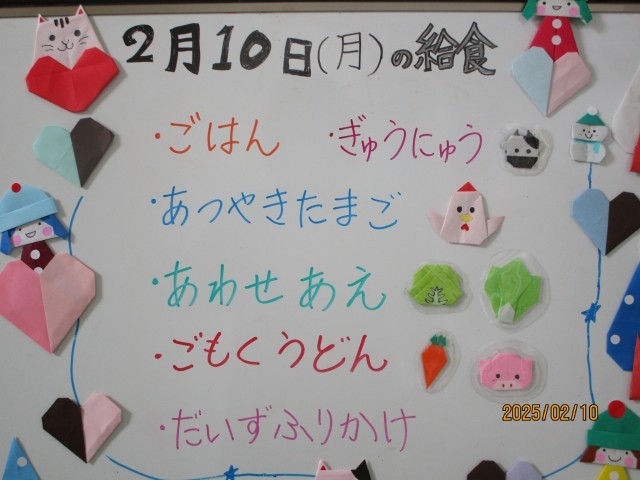 2月10日(月)の給食
・ごはん ・ぎゅうにゅう
・あつやきたまご
・あわせあえ
・ごもくうどん
・だいずふりかけ
2025/02/10